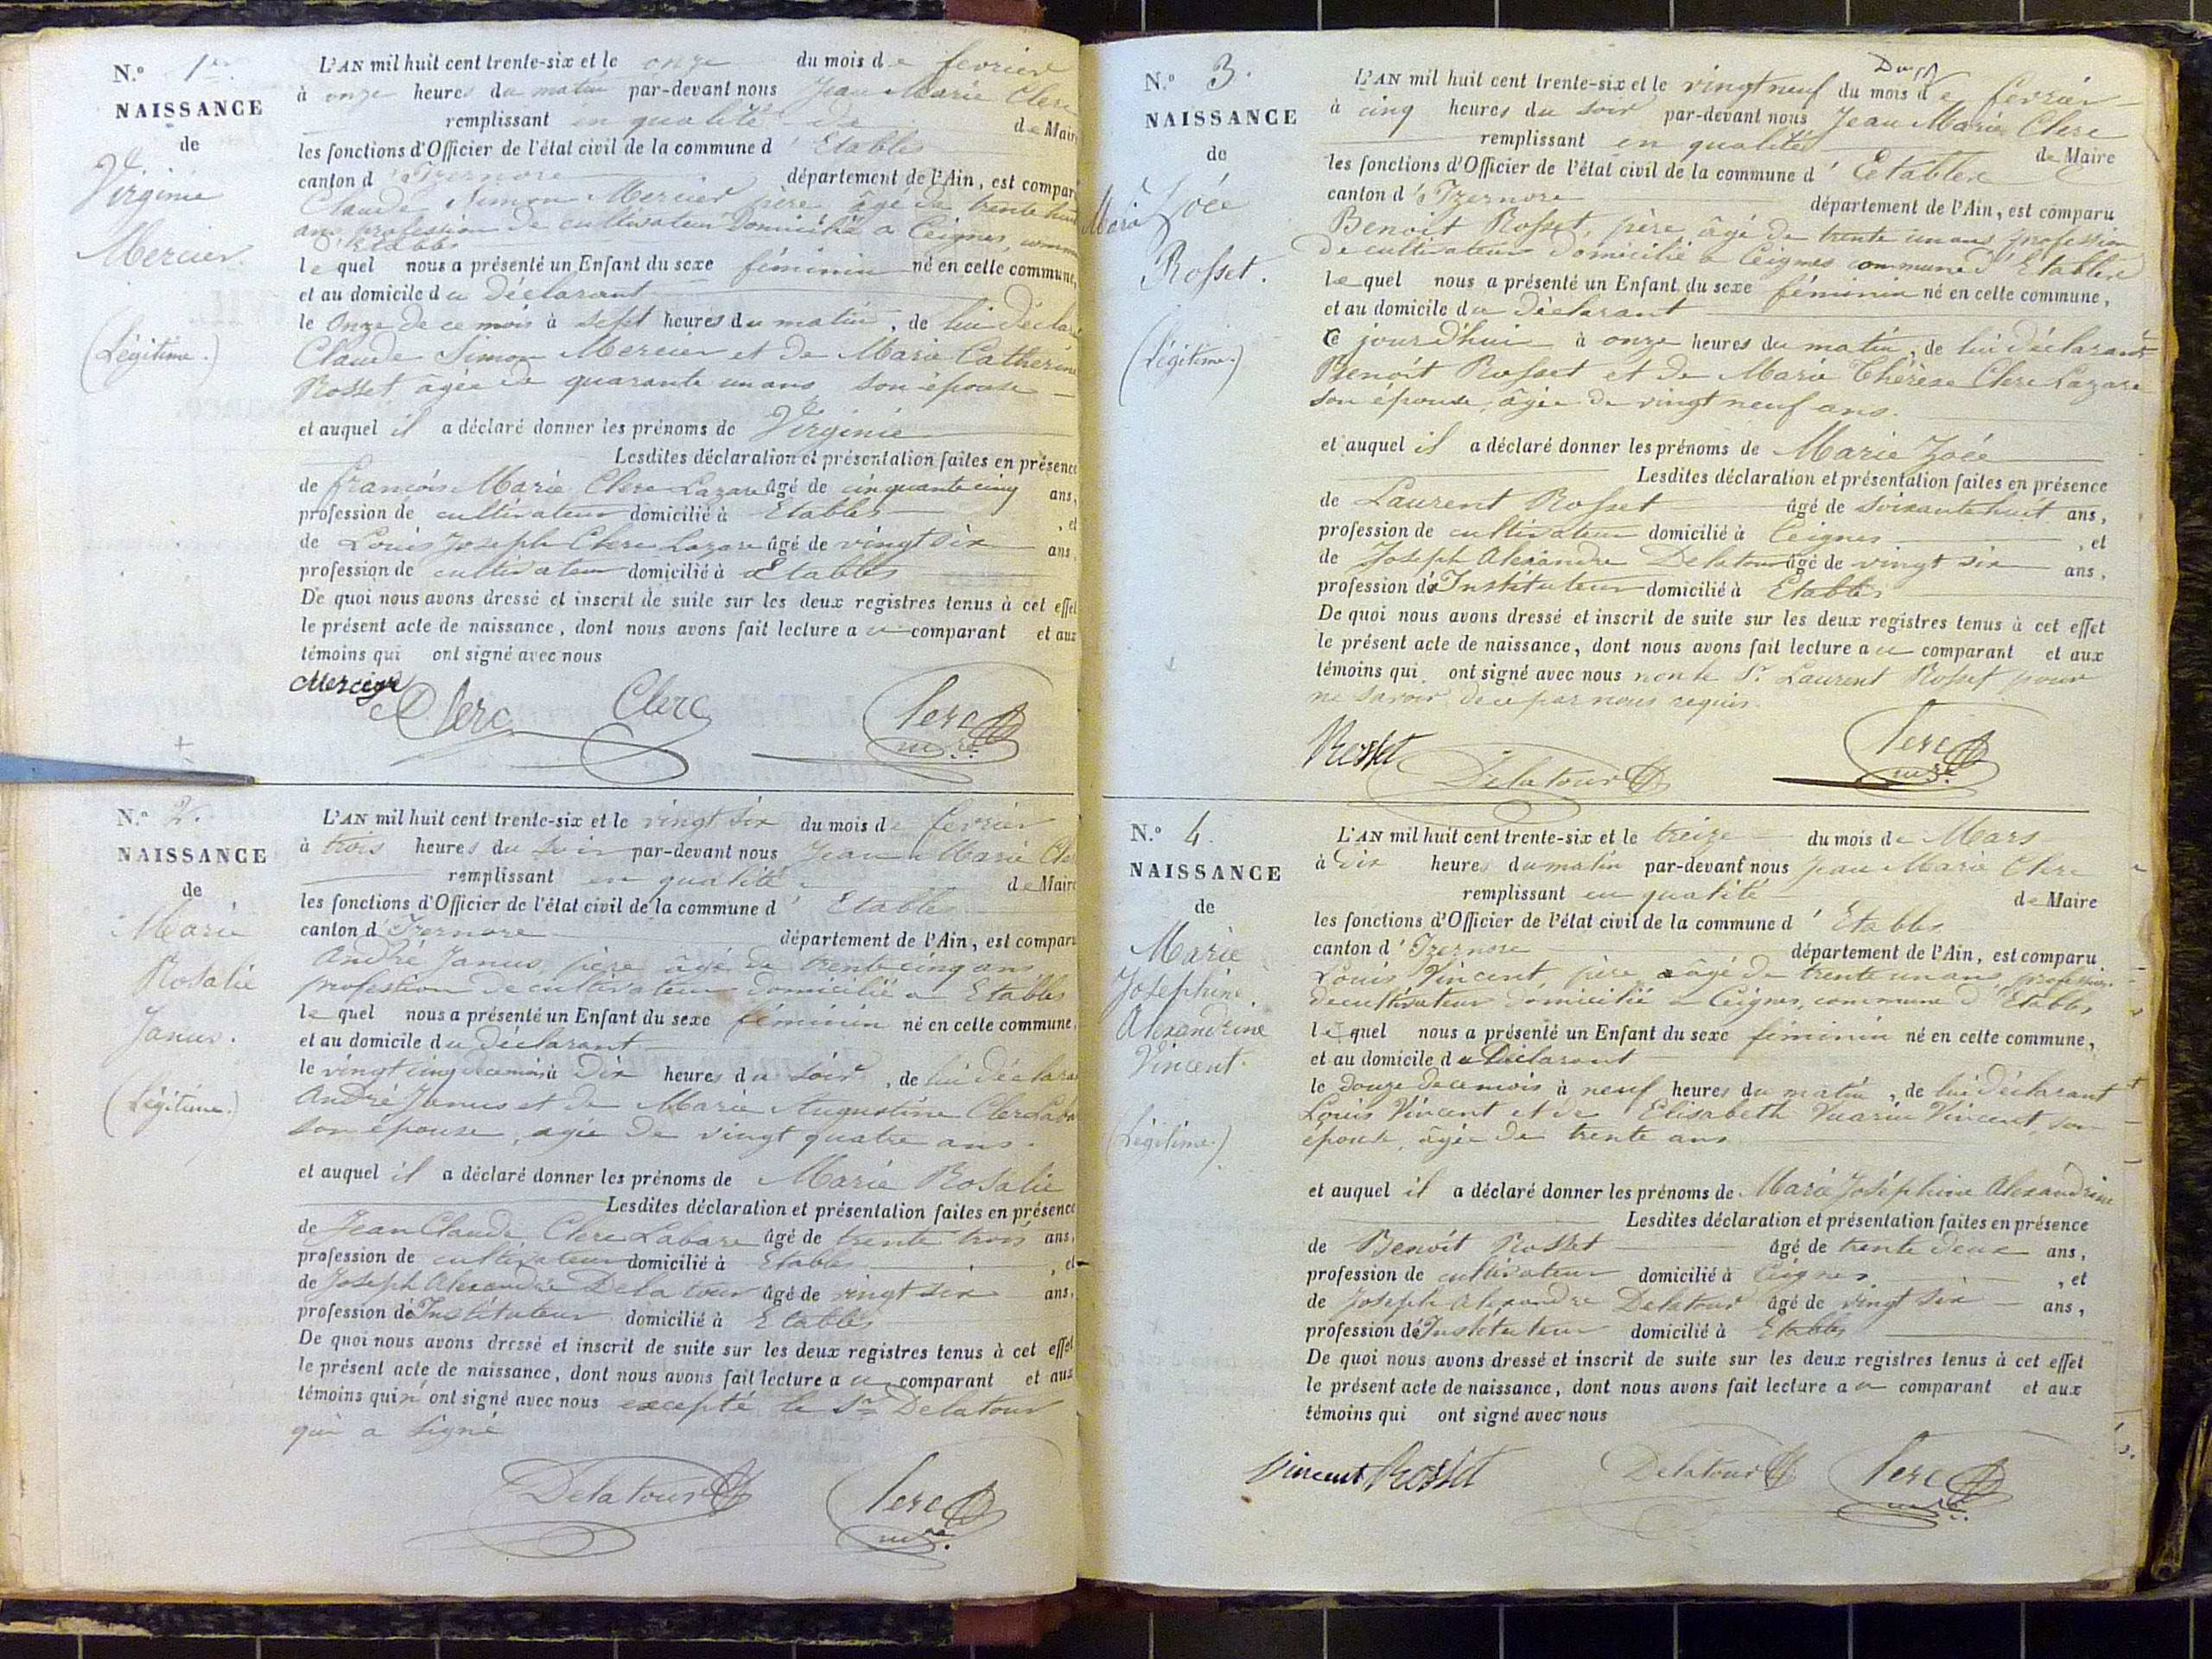 N.º 1er
NAISSANCE
de
Virginie
Mercier.
(Légitime.)
L'AN mil huit cent trente-six et le onze du mois de fevrier
à onze heures du matin par-devant nous Jean Marie Clerc
remplissant en qualité de Maire
les fonctions d'Officier de l'état civil de la commune d' Etables
canton d' Izernore département de l'Ain, est comparu
Claude Simon Mercier père âgé de trente huit
ans profession de cultivateur Domicilié à Ceignes, commune
d'Etables
le quel nous a présenté un Enfant du sexe féminin né en cette commune,
et au domicile du Déclarant
le Onze de ce mois à sept heures du matin, de lui déclarant
Claude Simon Mercier et de Marie Catherine
Rosset, âgée de quarante un ans son épouse
et auquel il a déclaré donner les prénoms de Virginie
Lesdites déclaration et présentation faites en présence
de françois Marie Clerc Lazare âgé de cinquante cinq ans,
profession de cultivateur domicilié à Etables, et
de Louis Joseph Clerc Lazare âgé de vingt six ans,
profession de cultivateur domicilié à Etables
De quoi nous avons dressé et inscrit de suite sur les deux registres tenus à cet effet
le présent acte de naissance, dont nous avons fait lecture au comparant et aux
témoins qui ont signé avec nous
Mercier Clerc Clerc Clerc
mre.
N.º 2.
NAISSANCE
de
Marie
Rosalie
Janus.
(Légitime.)
L'AN mil huit cent trente-six et le vingt six du mois de fevrier
à trois heures du soir par-devant nous Jean Marie Clerc
remplissant en qualité de Maire
les fonctions d'Officier de l'état civil de la commune d' Etables
canton d' Izernore département de l'Ain, est comparu
André Janus, père âgé de trente cinq ans,
profession de cultivateur domicilié à Etables
le quel nous a présenté un Enfant du sexe féminin né en cette commune,
et au domicile du Déclarant
le vingt cinq de ce mois à Dix heures du soir, de lui déclarant
André Janus et de Marie Augustine Clerc
son épouse, âgée de vingt quatre ans.
et auquel il a déclaré donner les prénoms de Marie Rosalie
Lesdites déclaration et présentation faites en présence
de Jean Claude Clerc Labare âgé de trente trois ans,
profession de cultivateur domicilié à Etables, et
de Joseph Alexandre Delatour âgé de vingt six ans,
profession d'Instituteur domicilié à Etables
De quoi nous avons dressé et inscrit de suite sur les deux registres tenus à cet effet
le présent acte de naissance, dont nous avons fait lecture au comparant et aux
témoins qui n'ont signé avec nous excepté le Sr Delatour
qui a signé
Delatour Clerc
mre.
N.º 3.
NAISSANCE
de
Marie Zoée
Rosset.
(Légitime.)
L'AN mil huit cent trente-six et le vingt neuf du mois de février
à cinq heures du soir par-devant nous Jean Marie Clerc
remplissant en qualité de Maire
les fonctions d'Officier de l'état civil de la commune d' Etables
canton d' Izernore département de l'Ain, est comparu
Benoit Rosset, père âgé de trente un ans profession
de cultivateur domicilié à Ceignes commune d'Etables
le quel nous a présenté un Enfant du sexe féminin né en cette commune,
et au domicile du Déclarant
Ce jourd'hui à onze heures du matin, de lui déclarant
Benoit Rosset et de Marie Thérèse Clerc Lazare
son épouse, âgée de vingt neuf ans.
et auquel il a déclaré donner les prénoms de Marie Zoée
Lesdites déclaration et présentation faites en présence
de Laurent Rosset âgé de soixante huit ans,
profession de cultivateur domicilié à Ceignes, et
de Joseph Alexandre Delatour âgé de vingt six ans,
profession d'Instituteur domicilié à Etables
De quoi nous avons dressé et inscrit de suite sur les deux registres tenus à cet effet
le présent acte de naissance, dont nous avons fait lecture au comparant et aux
témoins qui ont signé avec nous non le Sr Laurent Rosset pour
ne savoir, de ce par nous requis.
Rosset Delatour Clerc
mre.
N.º 4.
NAISSANCE
de
Marie
Joséphine
Alexandrine
Vincent.
(Légitime.)
L'AN mil huit cent trente-six et le treize du mois de Mars
à Dix heures du matin par-devant nous Jean Marie Clerc
remplissant en qualité de Maire
les fonctions d'Officier de l'état civil de la commune d' Etables
canton d' Izernore département de l'Ain, est comparu
Louis Vincent, père âgé de trente un ans, profession
de cultivateur domicilié à Ceignes, commune d'Etables
le quel nous a présenté un Enfant du sexe féminin né en cette commune,
et au domicile du Déclarant
le Douze de ce mois à neuf heures du matin, de lui déclarant
Louis Vincent et de Elisabeth Vincent son
épouse, âgée de trente ans
et auquel il a déclaré donner les prénoms de Marie Joséphine Alexandrine
Lesdites déclaration et présentation faites en présence
de Benoit Rosset âgé de trente deux ans,
profession de cultivateur domicilié à Ceignes, et
de Joseph Alexandre Delatour âgé de vingt six ans,
profession d'Instituteur domicilié à Etables
De quoi nous avons dressé et inscrit de suite sur les deux registres tenus à cet effet
le présent acte de naissance, dont nous avons fait lecture au comparant et aux
témoins qui ont signé avec nous
Vincent Rosset Delatour Clerc
mre.